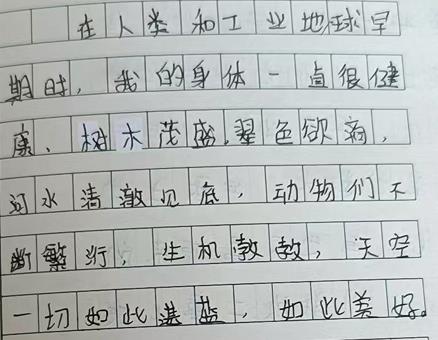 在人类和工业地球早
期时，我的身体一直很健
康、树木茂盛，翠色欲滴，
河水清澈见底，动物们不
断繁衍，生机敦敦，天空
一切如此湛蓝，如此美好。